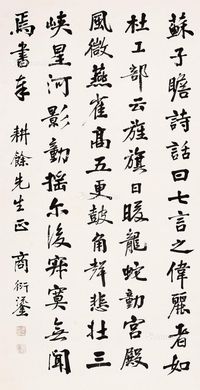 蘇子瞻詩話曰七言之偉麗者如
杜工部云旌旗日暖龍蛇動宮殿
風微燕雀高五更鼓角聲悲壯三
峽星河影動搖尔後寂寞無聞
焉書奉 耕餘先生正 商衍鎏